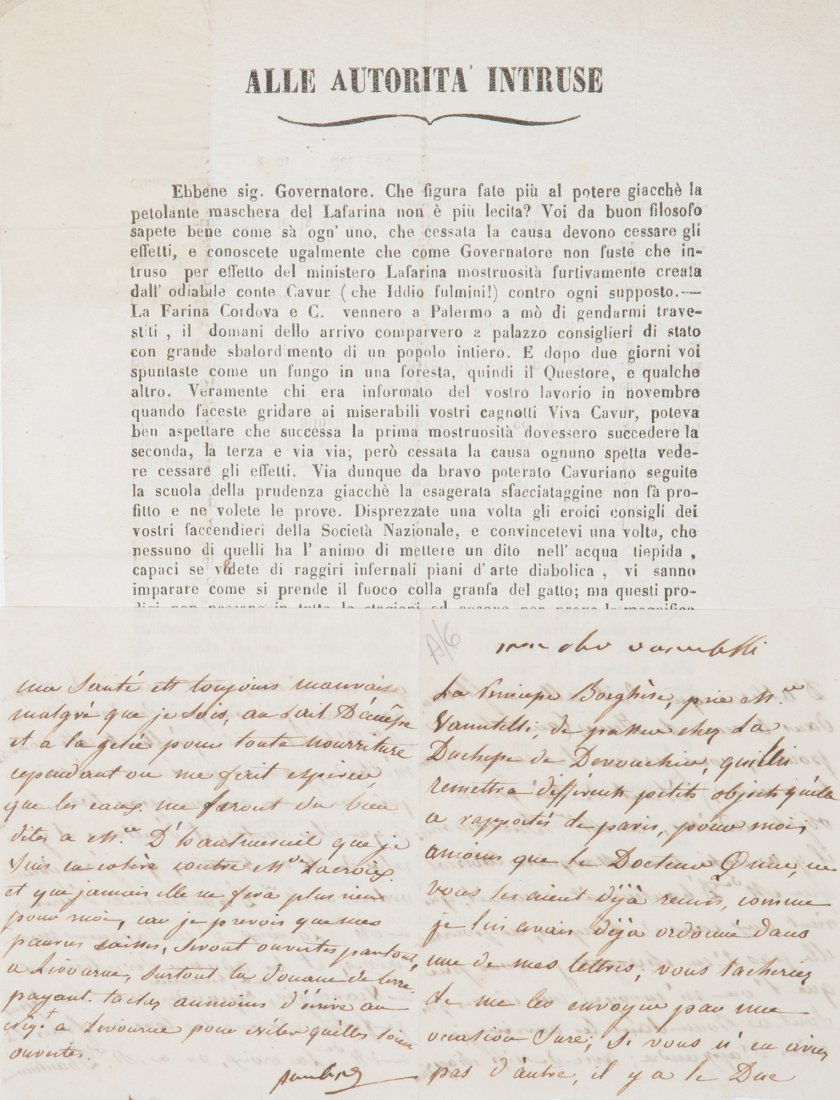 ALLE AUTORITA' INTRUSE
Ebbene sig. Governatore. Che figura fate più al potere giacchè la
petolante maschera del Lafarina non è più lecita? Voi da buon filosofo
sapete bene come sà ogn' uno, che cessata la causa devono cessare gli
effetti, e conoscete ugalmente che come Governatore non fuste che in-
truso per effetto del ministero Lafarina mostruosità furtivamente creata
dall' odiabile conte Cavur ( che Iddio fulmini!) contro ogni supposto.—
La Farina Cordova e C. vennero a Palermo a mò di gendarmi trave-
stiti , il domani dello arrivo comparvero a palazzo consiglieri di stato
con grande sbalord mento di un popolo intiero. E dopo due giorni voi
spuntaste come un fungo in una foresta, quindi il Questore, e qualche
altro. Veramente chi era informato del vostro lavorio in novembre
quando faceste gridare ai miserabili vostri cagnotti Viva Cavur, poteva
ben aspettare che successa la prima mostruosità dovessero succedere la
seconda, la terza e via via; però cessata la causa ognuno spetta vede-
re cessare gli effetti. Via dunque da bravo poterato Cavuriano seguite
la scuola della prudenza giacchè la esagerata sfacciataggine non fà pro-
fitto e ne volete le prove. Disprezzate una volta gli croici consigli dei
vostri faccendieri della Società Nazionale, e convincetevi una volta, che
nessuno di quelli ha l' animo di mettere un dito nell' acqua tiepida ,
capaci se volete di raggiri infernali piani d'arte diabolica , vi sanno
imparare come si prende il fuoco colla granfa del gatto; ma questi pro-
A/6
ma santé est toujours mauvaise
malgré que je sois, au lait D'ânesse
et a la gelée pour toute nourriture
cependant on me fait espérer
que les eaux me feront du bien
dites a Mme D'hautmesnil que je
suis en colère contre Mde Lacroix
et que jamais elle ne fera plus rien
pour moi, car je prevois que mes
pauvres caisses, seront ouvertes partout,
a Livourne, surtout la Douane de terre
payant. tachez aumoins d'écrire au
a Livourne pour éviter quelles soient
ouvertes.
La Princesse Borghèse, prie Mr
Vannutelli, de passer chez La
Duchesse de Devonshire, qui lui
remettra différents petits objets qu'elle
a rapportés de paris, pour moi,
amoins que le Docteur Quin, ne
vous les aient déjà remis, comme
je lui avais déjà ordonné dans
une de mes lettres; vous tacheriez
de me les envoyer par une
occasion sure; si vous n'en aviez
pas d'autre, il y a le Duc